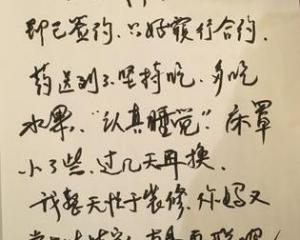 即已签约,只好履行合约.
药送到了,坚持吃,多吃
水果,“认真睡觉”.床罩
小了些,过几天再换.
我整天忙于装修,你妈又